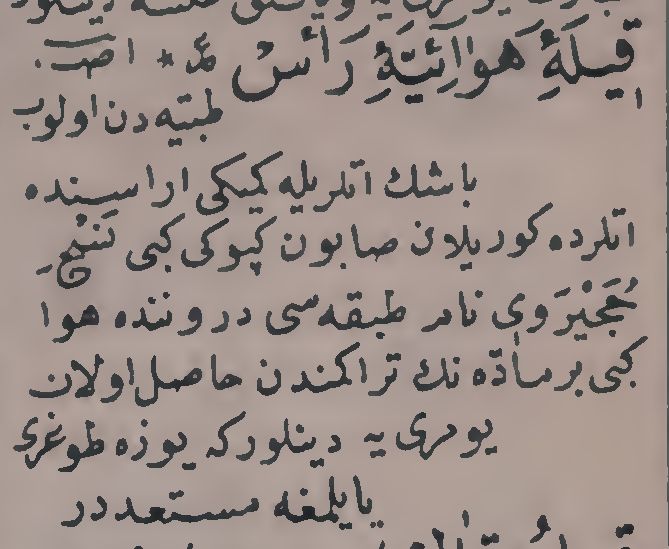 قيلۀ هوائيۀ رأس ۰ اص
طبيه دن اولوب
باشك اتلريله كميكى اراسنده
اتلرده كوريلان صابون كپوكى كبى نسج
حُجَيْرَوى نام طبقه سى دروننده هوا
كبى بر مادّه نك تراكمندن حاصل اولان
يومرى يه دينلور كه يوزه طوغرى
يايلمغه مستعددر